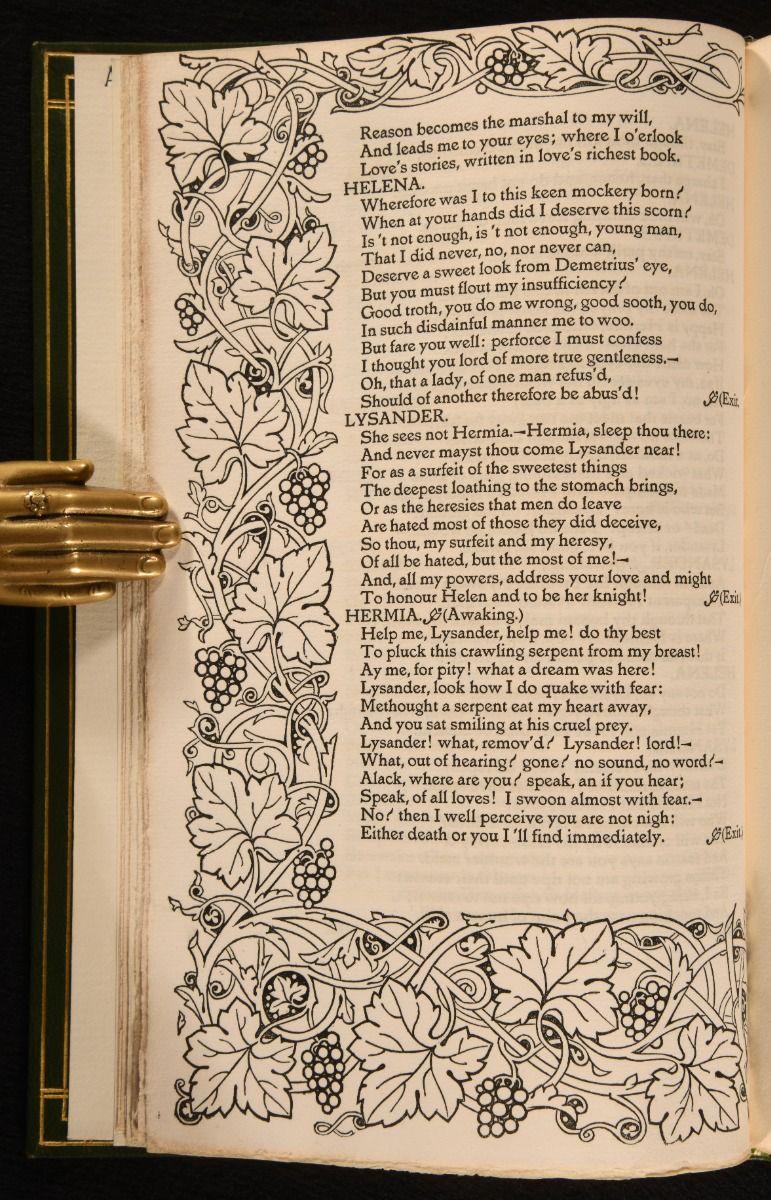 Reason becomes the marshal to my will,
And leads me to your eyes; where I o'erlook
Love's stories, written in love's richest book.
HELENA.
Wherefore was I to this keen mockery born?
When at your hands did I deserve this scorn?
Is 't not enough, is 't not enough, young man,
That I did never, no, nor never can,
Deserve a sweet look from Demetrius' eye,
But you must flout my insufficiency?
Good troth, you do me wrong, good sooth, you do,
In such disdainful manner me to woo.
But fare you well: perforce I must confess
I thought you lord of more true gentleness.—
Oh, that a lady, of one man refus'd,
Should of another therefore be abus'd! (Exit.
LYSANDER.
She sees not Hermia.—Hermia, sleep thou there:
And never mayst thou come Lysander near!
For as a surfeit of the sweetest things
The deepest loathing to the stomach brings,
Or as the heresies that men do leave
Are hated most of those they did deceive,
So thou, my surfeit and my heresy,
Of all be hated, but the most of me!—
And, all my powers, address your love and might
To honour Helen and to be her knight! (Exit.)
HERMIA. (Awaking.)
Help me, Lysander, help me! do thy best
To pluck this crawling serpent from my breast!
Ay me, for pity! what a dream was here!
Lysander, look how I do quake with fear:
Methought a serpent eat my heart away,
And you sat smiling at his cruel prey.
Lysander! what, remov'd? Lysander! lord!—
What, out of hearing? gone? no sound, no word?—
Alack, where are you? speak, an if you hear;
Speak, of all loves! I swoon almost with fear.—
No? then I well perceive you are not nigh:
Either death or you I 'll find immediately. (Exit.)